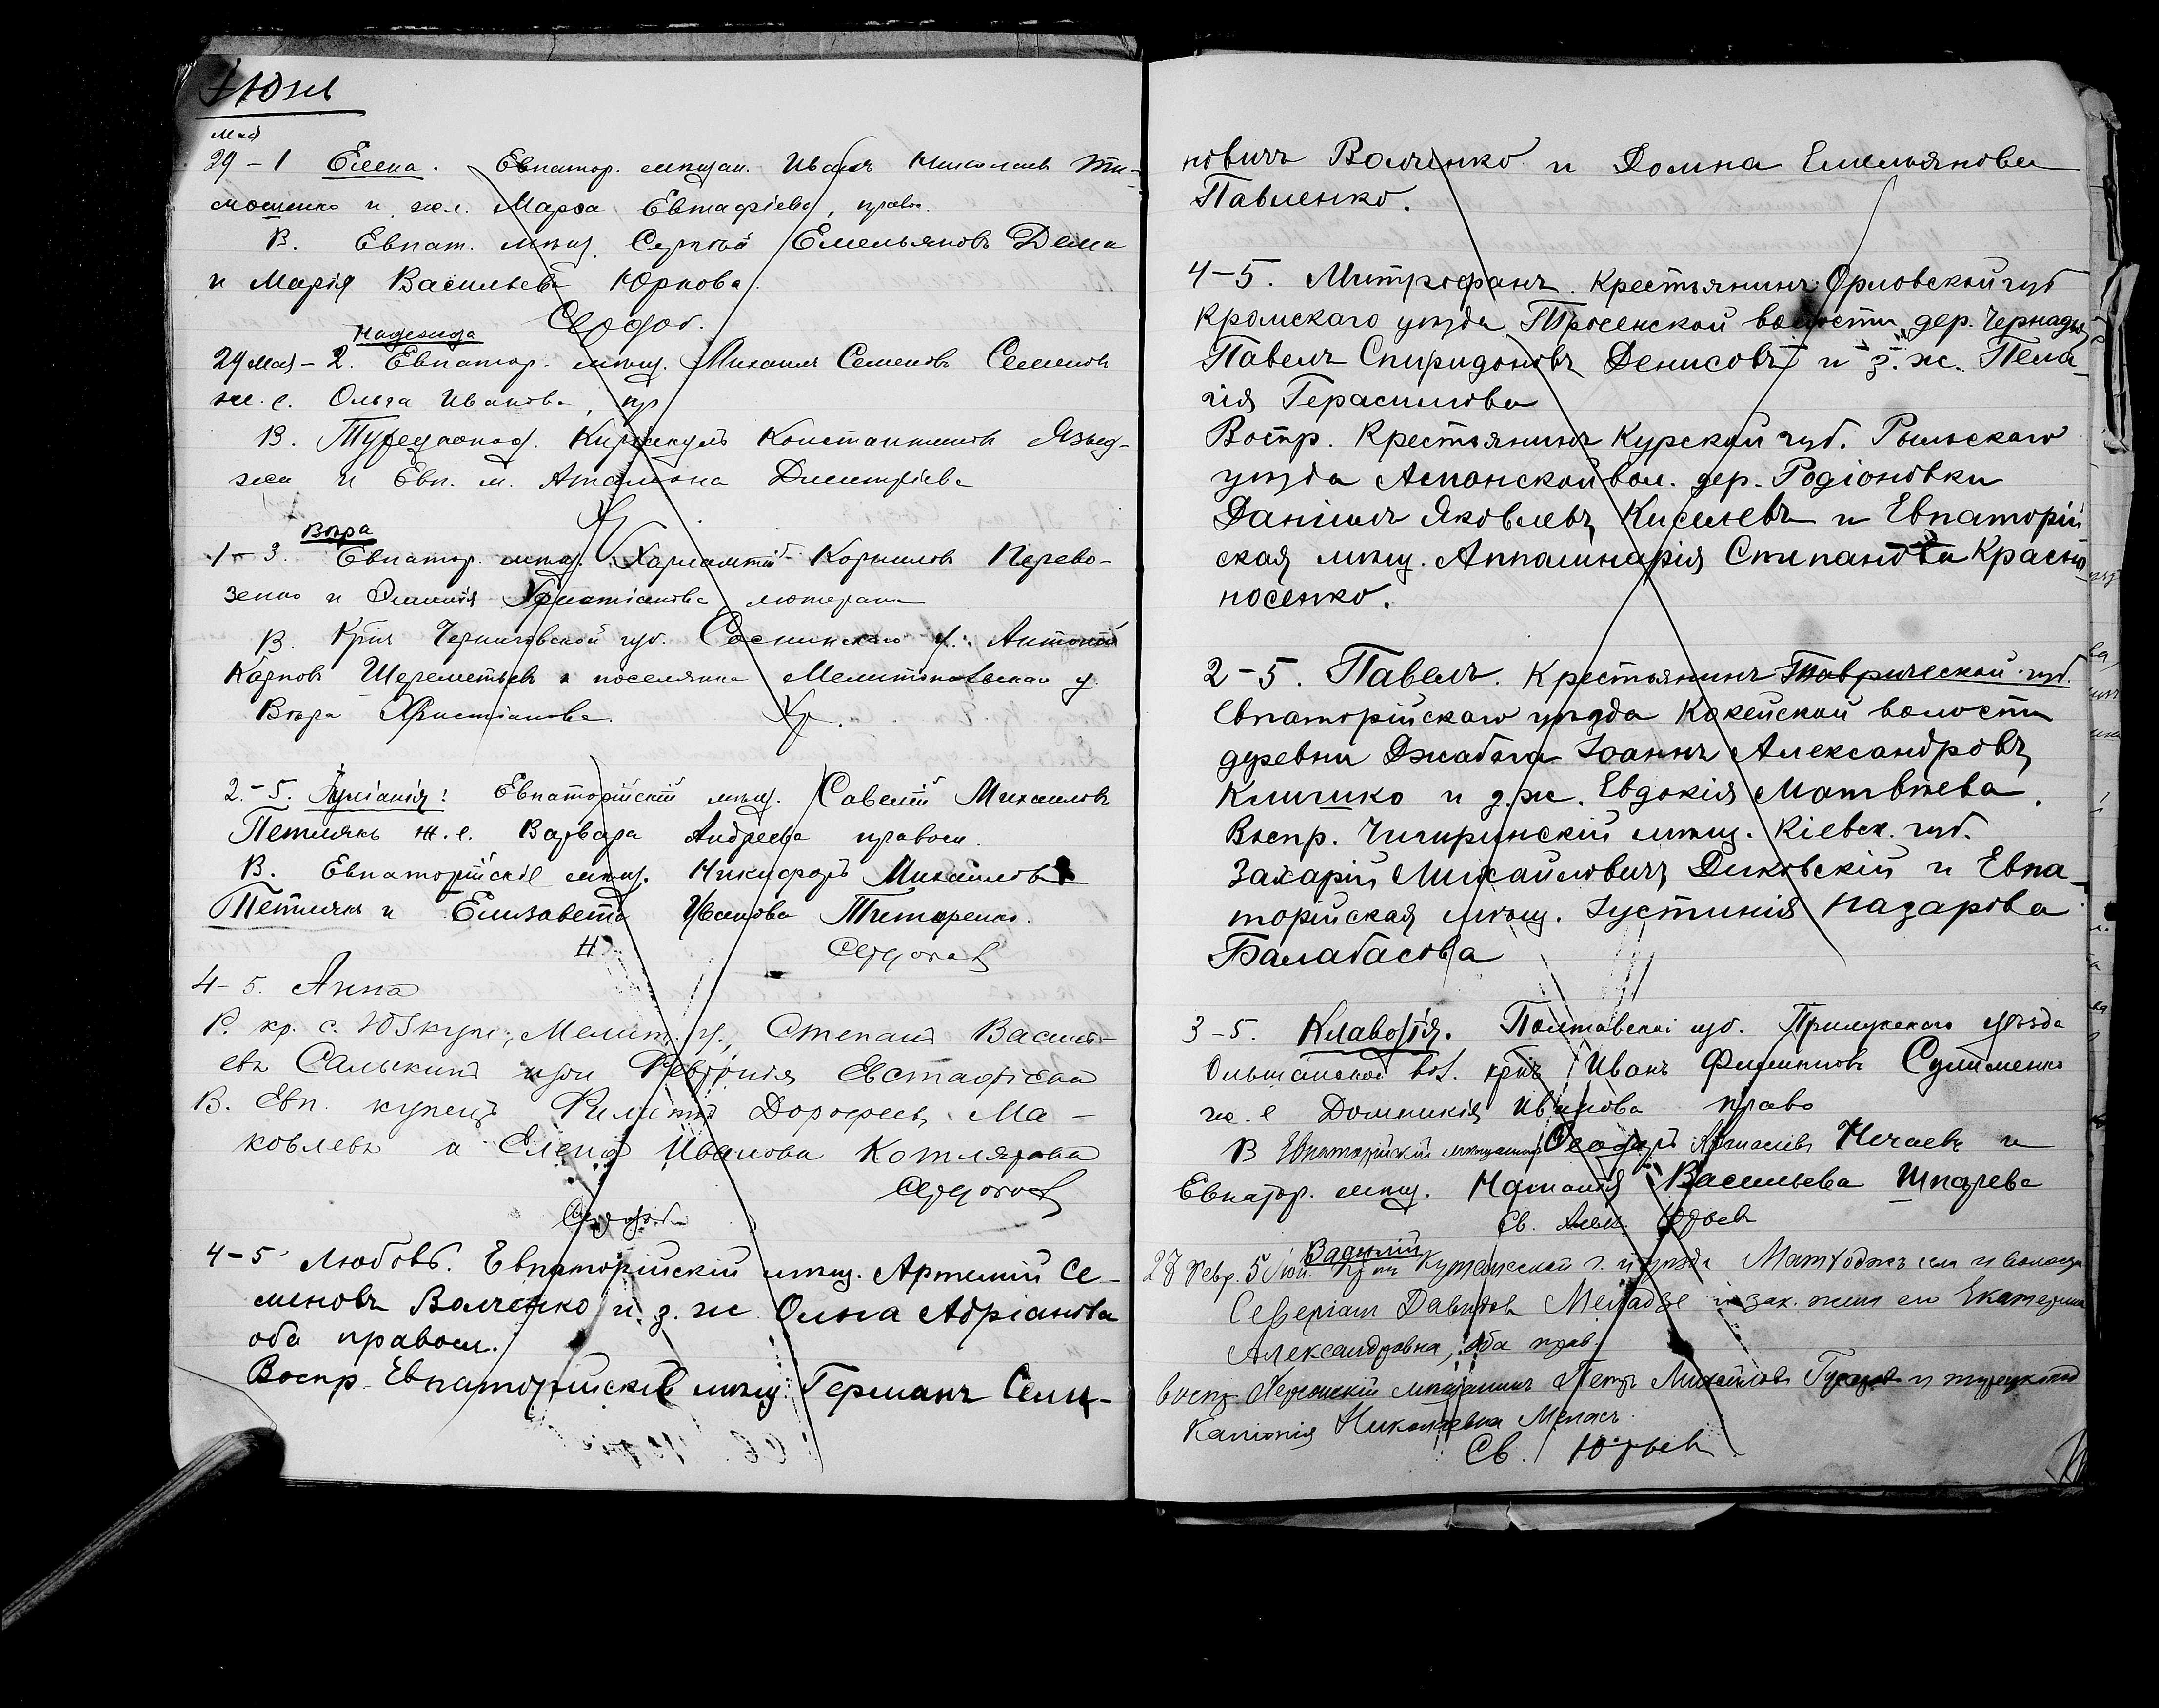 Іюнь
Мая
29 – 1 Елена. Евпатор. мѣщан. Иванъ Николаевъ Ти-
мошенко и ж. е. Марѳа Евстафіева, правос.
В. Евпат. мѣщ. Сергѣй Емельяновъ Дема
и Марія Васильева Юркова.
Надежда
29 Мая – 2. Евпатор. мѣщ. Михаилъ Семеновъ Семенов
ж. е. Ольга Иванова, пр
В. Турецкопод. Константинов Языд-
жи и Евп. м. Димитріева
Вѣра
1 – 3. Евпатор. мѣщ. Харлампій Корнилов Перево-
зенко и Христіанова лютеран
В. Крнъ Черниговской губ. Сосницкаго у. Антоній
Карпов Шереметьевъ и поселянка Мелитопольскаго у
Вѣра Христіанова.
2. – 5. Іуліанія: Евпаторійскій мѣщ. Савелій Михаилов
Петлякъ ж. е. Варвара Андреева правосл.
В. Евпаторійскіе мѣщ. Никифоръ Михаиловъ
Петлякъ и Елизавета Иванова Титаренко.
4 – 5. Анна
Р. кр. с. Мелит. у., Степанъ Василь-
евъ Сальскинъ и Февронія Евстафіева
В. Евп. купецъ Филиппъ Дорофеев Ма-
ковлевъ и Елена Иванова Котлярова
4 – 5 Любовь. Евпаторійскій мѣщ. Артемій Се-
меновъ Волченко и з. ж Ольга Адріанова
оба правосл.
Воспр. Евпаторійскіе мѣщ. Германъ Семе-
новичъ Волченко и Домна Емельянова
Павленко.
4 – 5. Митрофанъ. Крестьянинъ Орловской губ
Кромскаго уѣзда Тросенской волости, дер. Чернадья
Павелъ Спиридоновъ Денисовъ и з. ж. Пела-
гія Герасимова
Воспр. Крестьянинъ Курской губ. Рыльскаго
уѣзда Аспонской вол. дер. Родіоновки
Даніилъ Яковлевъ Киселевъ и Евпаторій
ская мѣщ. Апполинарія Степанова Красно
носенко.
2 – 5. Павелъ. Крестьянинъ Таврической губ.
Евпаторійскаго уѣзда Кокейской волости
деревни Джабага Іоаннъ Александровъ
Клишко и з. ж. Евдокія Матвѣева.
Воспр. Чигиринскій мѣщ. Кіевск. губ.
Захарій Михайловичъ Диковскій и Евпа-
торійская мѣщ. Іустинія Назарова
Балабасова
3 – 5. Клавдія. Полтавской губ. Прилукскаго уѣзда
Ольшанской вол. крнъ Иванъ Филиппов Сулименко
ж. е Домникія Иванова право
В Евпаторійскій мѣщанинъ Ѳеодоръ Нечаевъ и
Евпатор. мѣщ. Наталія Васильева Шпарева
Св. Алек. Юрьев
Вадимъ
27 Февр. 5 Іюн. Кутаисской г. и уѣзда села и волости
Северіанъ Давидов Меладзе и зак. жена его Екатерина
Александровна, оба прав.
воспр. Херсонскій мѣщанинъ Петръ Михайлов и турецкопод
Николаевна Меласъ.
Св. Юрьев